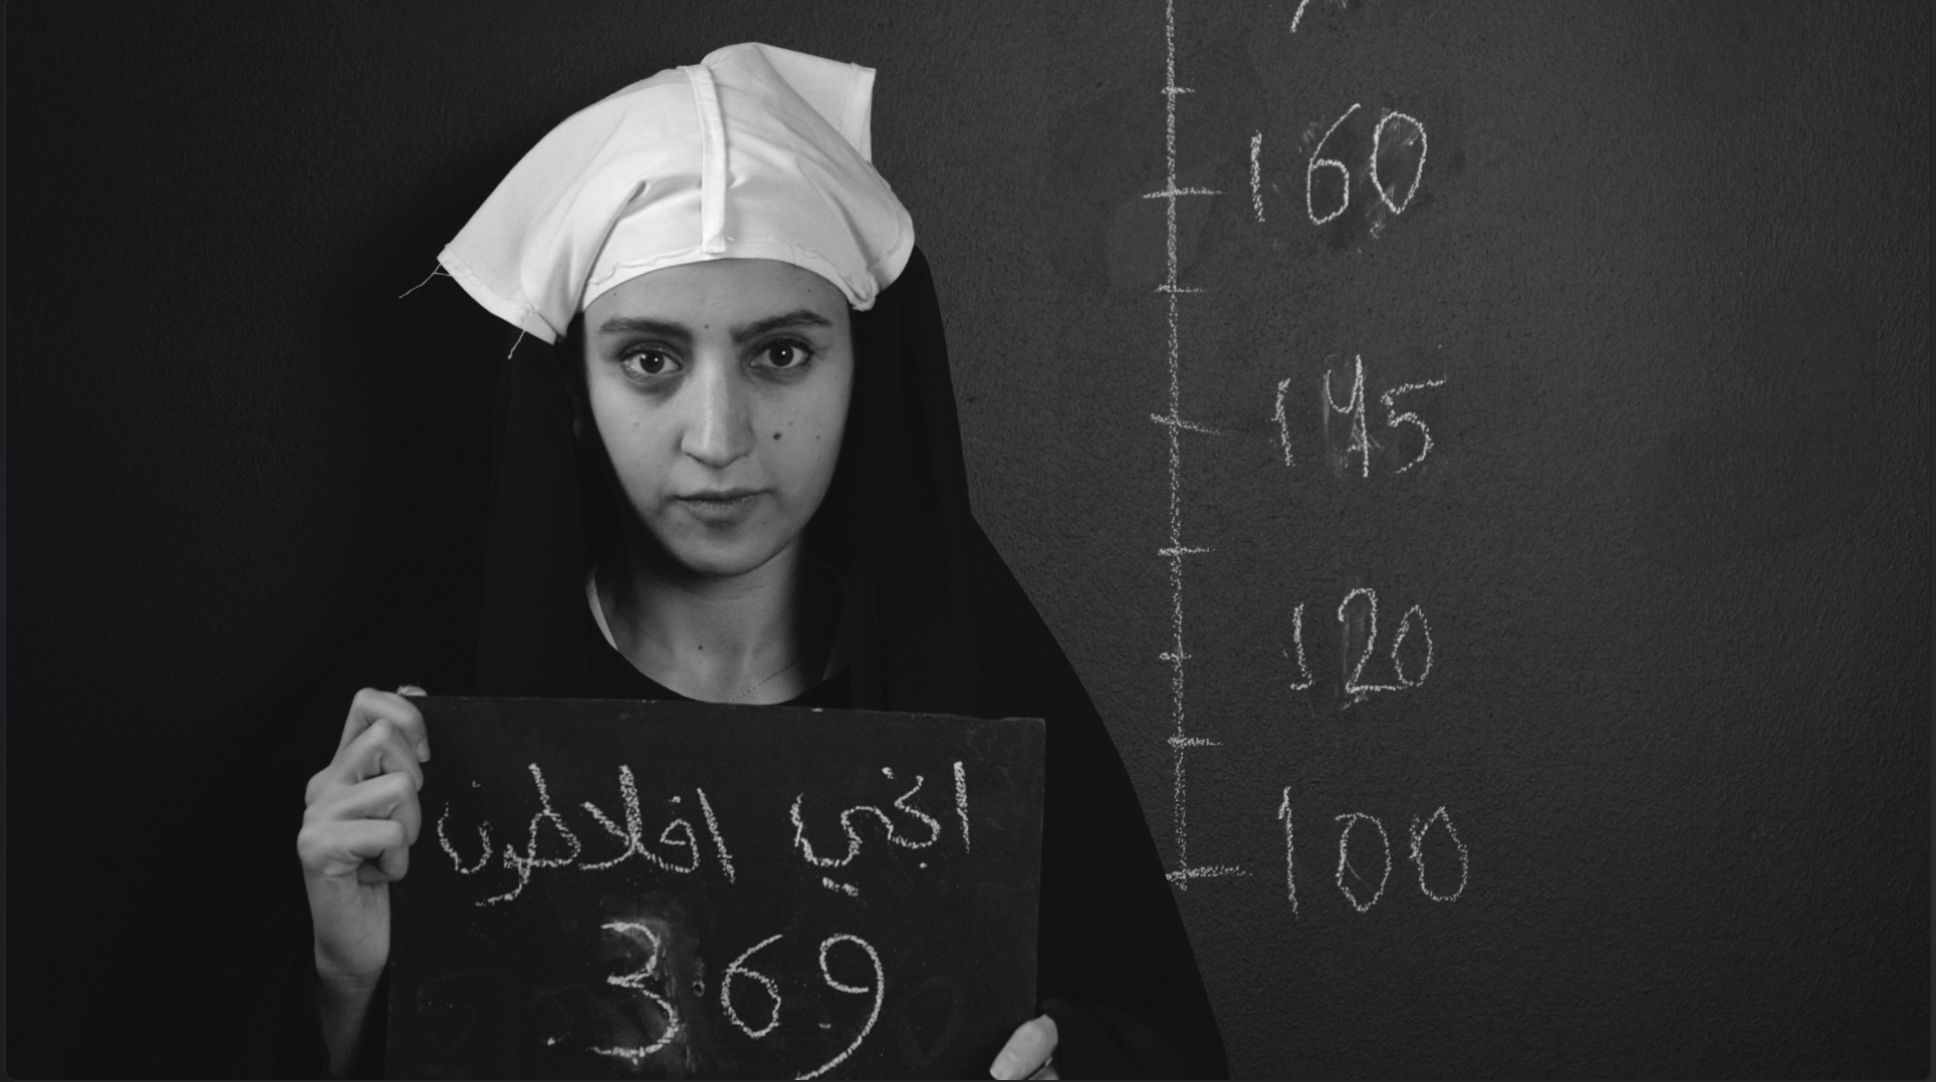 160
145
120
100
انجي افلاطون
3 69